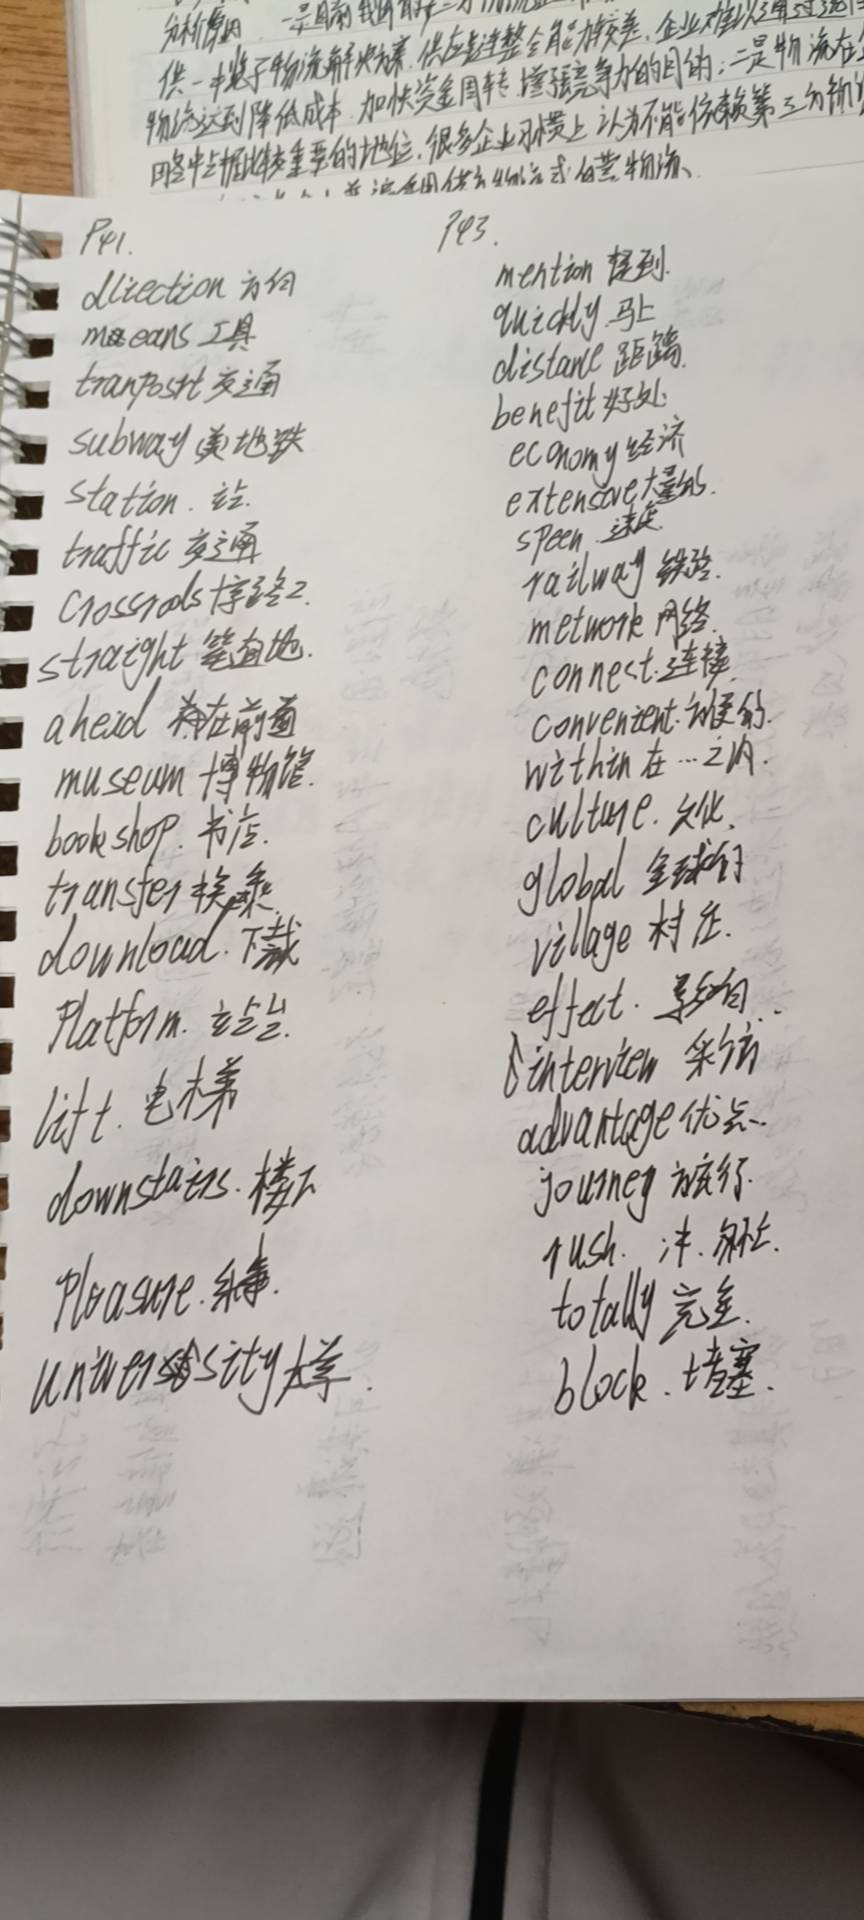 供一揽子物流解决方案,供应链整合能力较差,企业难以通过
物流达到降低成本,加快资金周转,增强竞争力的目的;二是物流在
略中占据比较重要的地位,很多企业习惯上认为不能依赖第三方物流
P41.
direction 方向
means 工具
tranposrt 交通
subway 美 地铁
station. 站.
traffic 交通
Crossrods 十字路口.
straight 笔直地.
ahead 在前面
museum 博物馆.
bookshop. 书店.
transfer 换乘
download. 下载
Platform. 站台.
lift. 电梯
downstairs. 楼下
Pleasure. 乐事.
university 大学.
P43.
mention 提到.
quickly. 马上
distane 距离.
benefit 好处.
economy 经济
extensove 大量的.
speen. 速度.
railway 铁路.
metwork 网络.
connest. 连接.
convenient. 方便的.
within 在…之内.
culture. 文化.
global 全球的
village 村庄.
effect. 影响..
interview 采访
advantage 优点.
journey 旅行.
rush. 冲.
totally 完全.
block. 堵塞.